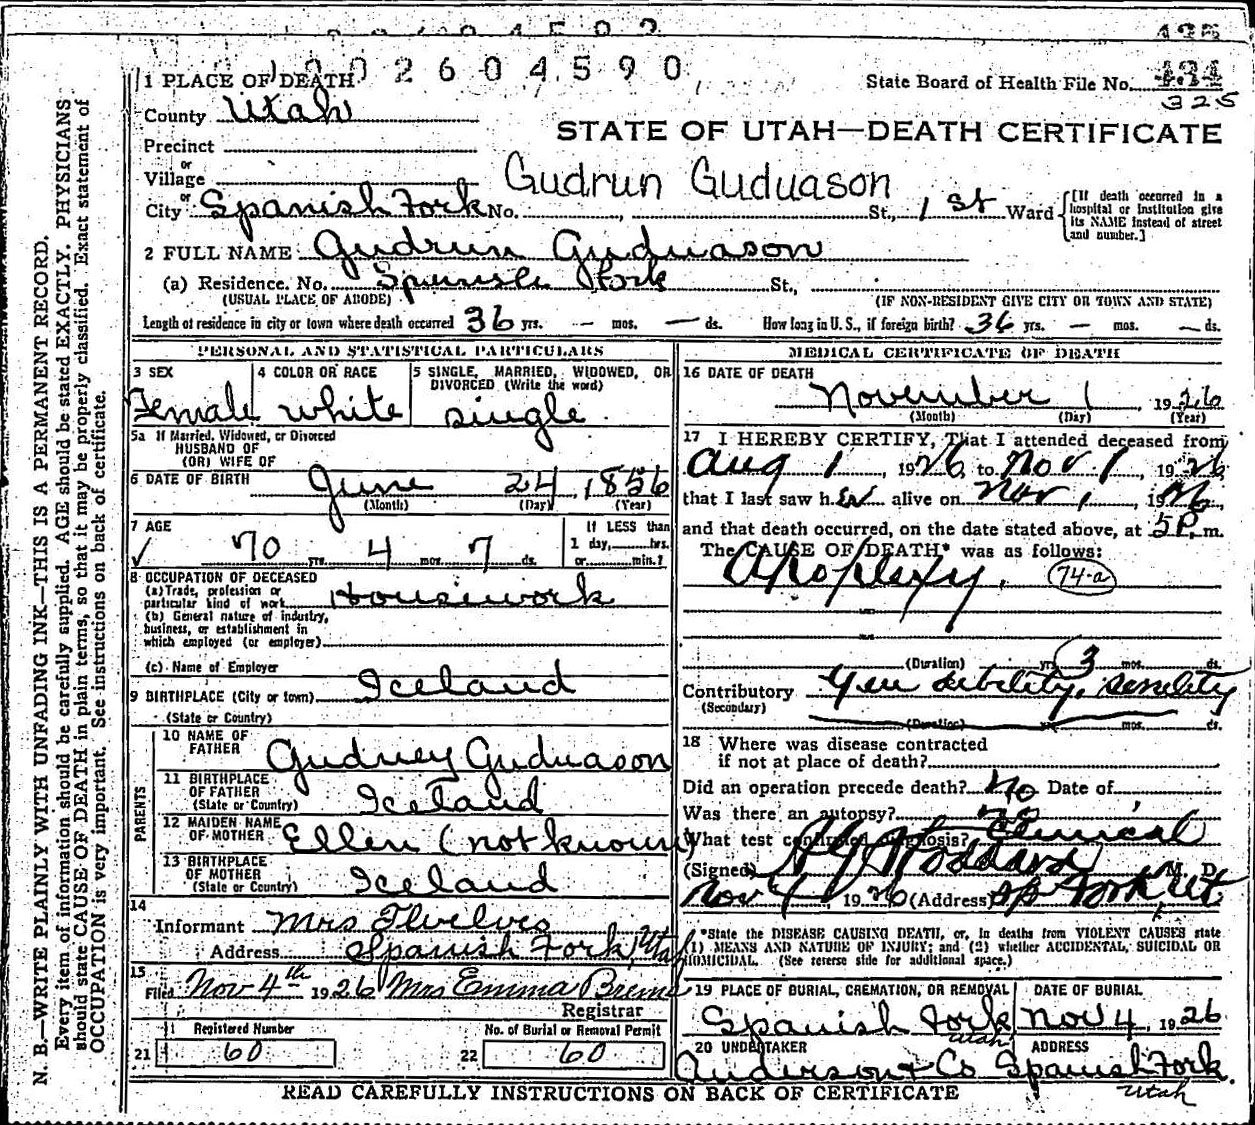 1 0 0 2 6 0 4 5 9 0
435
1 PLACE OF DEATH
State Board of Health File No. 434
325
County Utah
STATE OF UTAH—DEATH CERTIFICATE
Precinct
or
Village
Gudrun Guduason
or
City Spanish Fork No. , St., 1 st Ward
[If death occurred in a hospital or institution give its NAME instead of street and number.]
2 FULL NAME Gudrun Guduason
(a) Residence. No. Spanish Fork St.,
(USUAL PLACE OF ABODE) (IF NON-RESIDENT GIVE CITY OR TOWN AND STATE)
Length of residence in city or town where death occurred 36 yrs. — mos. — ds. How long in U.S., if foreign birth? 36 yrs. — mos. — ds.
PERSONAL AND STATISTICAL PARTICULARS
3 SEX 4 COLOR OR RACE 5 SINGLE, MARRIED, WIDOWED, OR DIVORCED (Write the word)
Female white single
5a If Married, Widowed, or Divorced
HUSBAND OF
(OR) WIFE OF
6 DATE OF BIRTH June 24, 1856
(Month) (Day) (Year)
7 AGE If LESS than
✓ 70 yrs. 4 mos. 7 ds. 1 day,......hrs.
or......min.?
8 OCCUPATION OF DECEASED
(a) Trade, profession or
particular kind of work Housework
(b) General nature of industry,
business, or establishment in
which employed (or employer)
(c) Name of Employer
9 BIRTHPLACE (City or town) Iceland
(State or Country)
PARENTS
10 NAME OF FATHER Gudney Guduason
11 BIRTHPLACE OF FATHER (State or Country) Iceland
12 MAIDEN NAME OF MOTHER Ellen (not known)
13 BIRTHPLACE OF MOTHER (State or Country) Iceland
14
Informant Mrs Twelves
Address Spanish Fork, Utah
15
Filed Nov 4th 1926 Mrs Emma Brems
Registrar
Registered Number No. of Burial or Removal Permit
21 60 22 60
MEDICAL CERTIFICATE OF DEATH
16 DATE OF DEATH
November 1, 1926
(Month) (Day) (Year)
17 I HEREBY CERTIFY, That I attended deceased from
Aug 1, 1926, to Nov 1, 1926,
that I last saw her alive on Nov 1, 1926
and that death occurred, on the date stated above, at 5 P. m.
The CAUSE OF DEATH* was as follows:
Apoplexy. 74-a
(Duration) yrs. 3 mos. ds.
Contributory Gen debility, senility
(Secondary)
(Duration) yrs. mos. ds.
18 Where was disease contracted
if not at place of death?
Did an operation precede death? No Date of
Was there an autopsy? no
What test confirmed diagnosis? Clinical
(Signed) Stoddard, M. D.
Nov 4, 1926 (Address) Sp Fork, Ut
*State the DISEASE CAUSING DEATH, or, in deaths from VIOLENT CAUSES state
(1) MEANS AND NATURE OF INJURY; and (2) whether ACCIDENTAL, SUICIDAL OR
HOMICIDAL. (See reverse side for additional space.)
19 PLACE OF BURIAL, CREMATION, OR REMOVAL DATE OF BURIAL
Spanish Fork Utah Nov 4, 1926
20 UNDERTAKER ADDRESS
Anderson & Co Spanish Fork.
Utah
READ CAREFULLY INSTRUCTIONS ON BACK OF CERTIFICATE
N. B.—WRITE PLAINLY WITH UNFADING INK—THIS IS A PERMANENT RECORD.
Every item of information should be carefully supplied. AGE should be stated EXACTLY. PHYSICIANS
should state CAUSE OF DEATH in plain terms, so that it may be properly classified. Exact statement of
OCCUPATION is very important. See instructions on back of certificate.